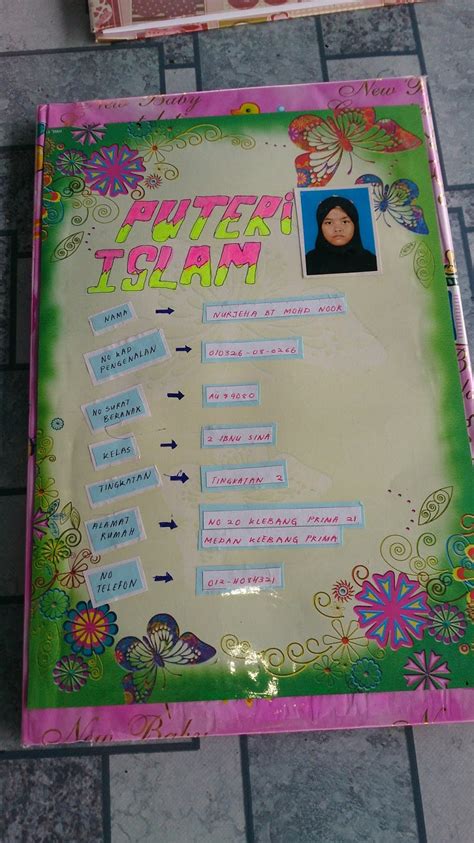 New Baby
New
PUTERI
ISLAM
NAMA → NURJEHA BT MOHD NOOR
NO KAD
PENGENALAN → 010326-08-0266
NO SURAT
BERANAK
KELAS → 2 IBNU SINA
TINGKATAN → TINGKATAN 2
ALAMAT
RUMAH → NO 20 KLEBANG PRIMA 21
MEDAN KLEBANG PRIMA
NO
TELEFON → 012-4084321
New Baby